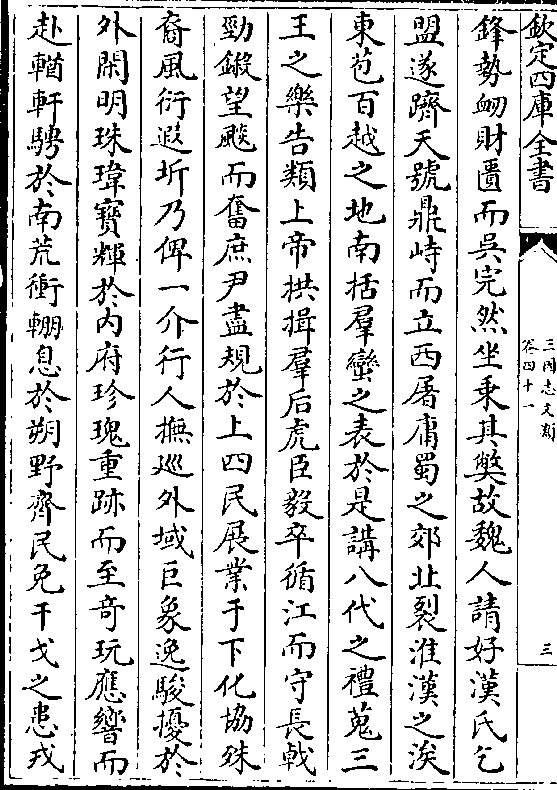 欽定四庫全書
三國志文類
卷四十一
三
鋒勢衂財匱而吳完然坐乗其獘故魏人請好漢氏乞
盟遂躋天號鼎峙而立西屠庸蜀之郊北裂淮漢之涘
東苞百越之地南括羣蠻之表於是講八代之禮蒐三
王之樂告類上帝拱揖羣后虎臣毅卒循江而守長㦸
勁鎩望飈而奮庶尹盡規於上四民展業于下化協殊
裔風衍遐圻乃俾一介行人撫廵外域巨象逸駿擾於
外閑明珠瑋寳輝於内府珍瑰重跡而至奇玩應響而
赴輶軒騁於南荒衝輣息於朔野齊民免干戈之患戎